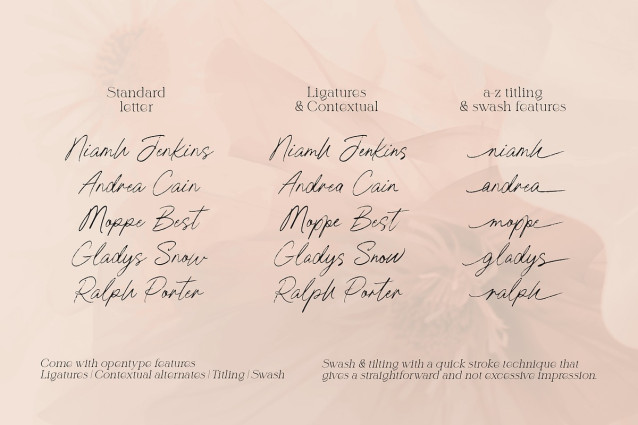 Standard
letter
Niamh Jenkins
Andrea Cain
Moppe Best
Gladys Snow
Ralph Porter
Ligatures
& Contextual
Niamh Jenkins
Andrea Cain
Moppe Best
Gladys Snow
Ralph Porter
a-z titling
& swash features
niamh
andrea
moppe
gladys
ralph
Come with opentype features
Ligatures | Contextual alternates | Titling | Swash
Swash & tilting with a quick stroke technique that
gives a straightforward and not excessive impression.